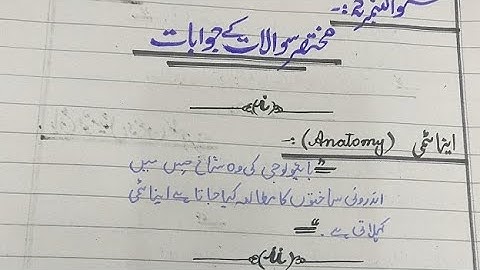 سوال نمبر 2:-
مختصر سوالات کے جوابات
(i)
اینا ٹمی (Anatomy) :-
"بائیولوجی کی وہ شاخ جس میں
اندرونی ساختوں کا مطالعہ کیا جاتا ہے اینا ٹمی
کہلاتی ہے۔"
(ii)